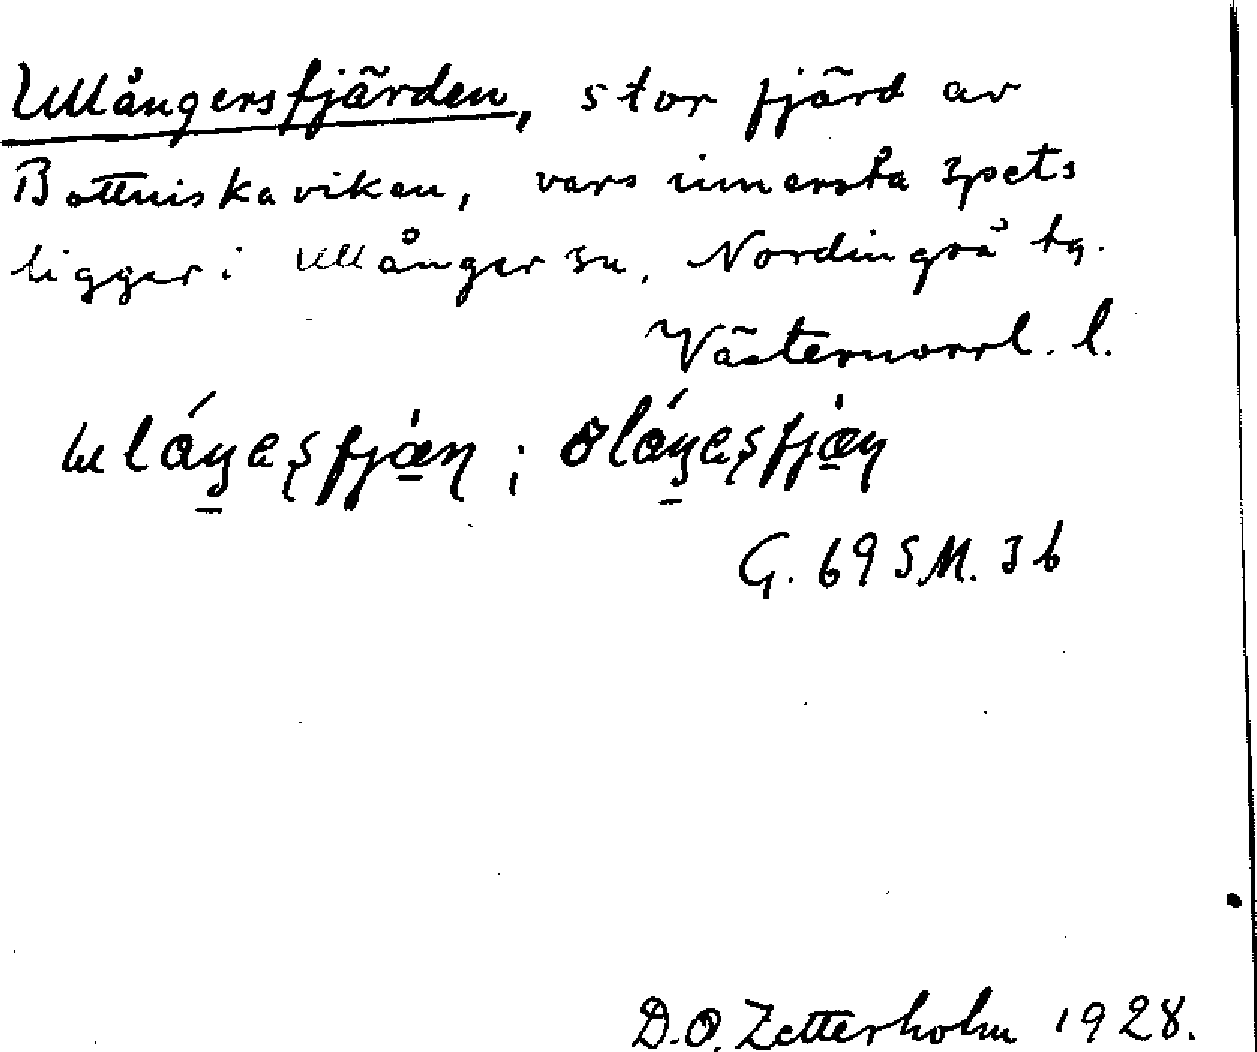 Ullångersfjärden, stor fjärd av
Bottniska viken, vars innersta spets
ligger i Ullånger sn, Nordingrå tg.
Västernorrl. l.
G. 69 S.M. 36
D.O. Zetterholm 1928.